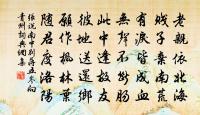 老親依北海
賤子棄南荒
有淚皆成血
無聲不斷腸
此中逢故友
彼地送還鄉
願作楓林葉
隨君度洛陽
張說南中別蔣五岑向
青州詞典網集